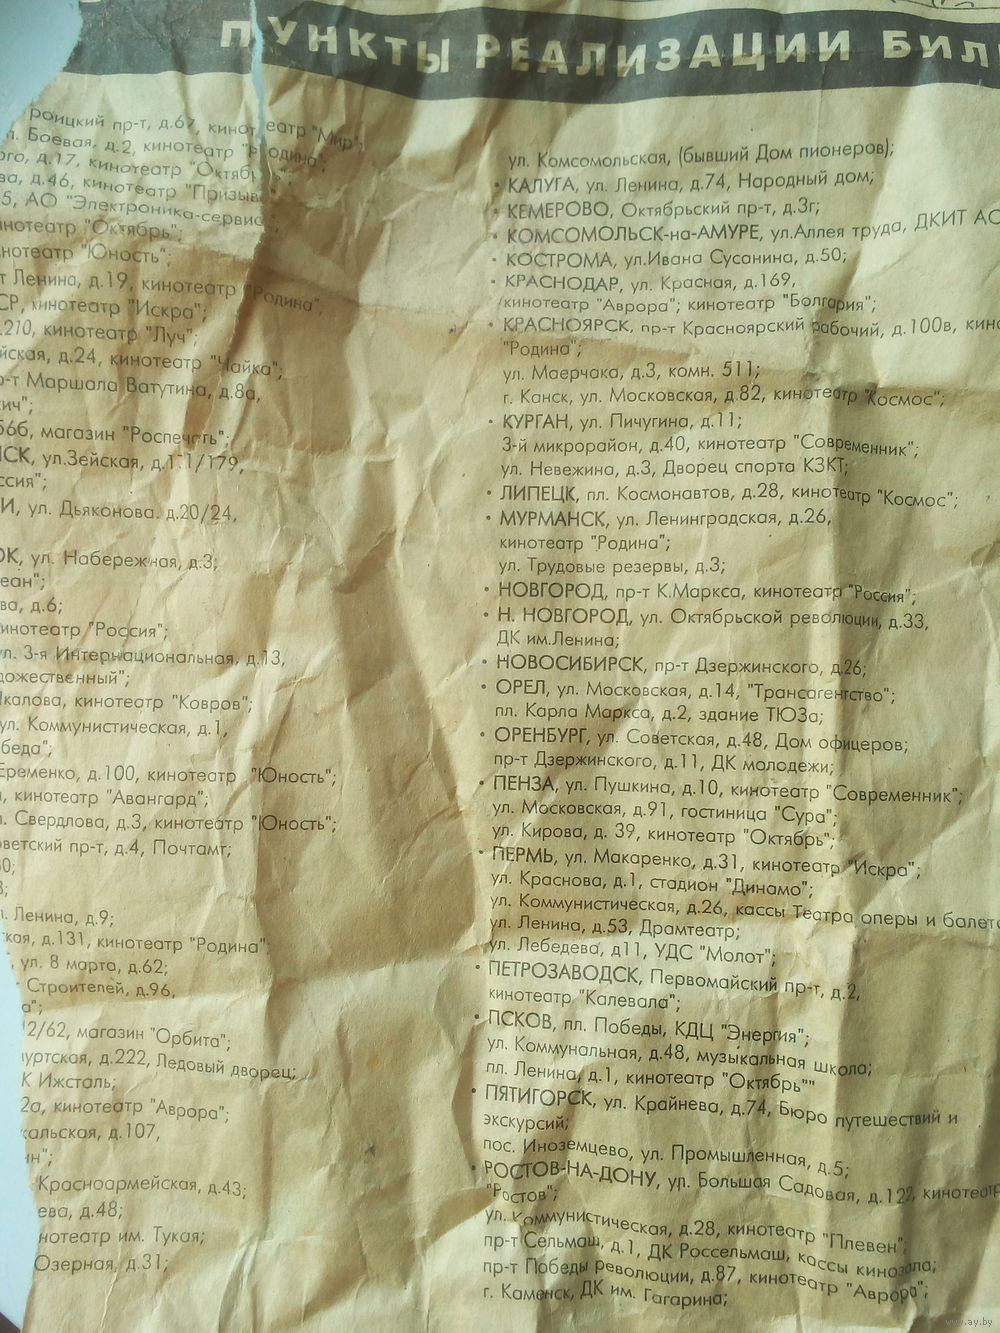 ПУНКТЫ РЕАЛИЗАЦИИ БИЛ
роицкий пр-т, д.67, кинотеатр "Мир";
Боевая, д.2, кинотеатр "Родина";
д.17, кинотеатр "Октябр
ва, д.46, кинотеатр "Призыв
5, АО "Электроника-сервис
инотеатр "Октябрь";
нотеатр "Юность";
т Ленина, д.19, кинотеатр "Родина";
СР, кинотеатр "Искра";
.210, кинотеатр "Луч";
йская, д.24, кинотеатр "Чайка";
р-т Маршала Ватутина, д.8а,
ич";
56б, магазин "Роспечать";
СК, ул.Зейская, д.171/179,
ссия";
И, ул. Дьяконова. д.20/24,
ОК, ул. Набережная, д.3;
еан";
ва, д.6;
инотеатр "Россия";
ул. 3-я Интернациональная, д.13,
дожественный";
калова, кинотеатр "Ковров";
ул. Коммунистическая, д.1,
беда";
Еременко, д.100, кинотеатр "Юность";
, кинотеатр "Авангард";
л. Свердлова, д.3, кинотеатр "Юность";
оветский пр-т, д.4, Почтамт;
0;
3;
. Ленина, д.9;
кая, д.131, кинотеатр "Родина";
, ул. 8 марта, д.62;
Строителей, д.96,
а";
2/62, магазин "Орбита";
муртская, д.222, Ледовый дворец;
К Ижсталь;
2а, кинотеатр "Аврора";
кальская, д.107,
ин";
Красноармейская, д.43;
ева, д.48;
нотеатр им. Тукая;
Озерная, д.31;
ул. Комсомольская, (бывший Дом пионеров);
• КАЛУГА, ул. Ленина, д.74, Народный дом;
• КЕМЕРОВО, Октябрьский пр-т, д.3г;
• КОМСОМОЛЬСК-на-АМУРЕ, ул.Аллея труда, ДКИТ АО
• КОСТРОМА, ул.Ивана Сусанина, д.50;
• КРАСНОДАР, ул. Красная, д.169,
кинотеатр "Аврора"; кинотеатр "Болгария";
• КРАСНОЯРСК, пр-т Красноярский рабочий, д.100в, кино
"Родина";
ул. Маерчака, д.3, комн. 511;
г. Канск, ул. Московская, д.82, кинотеатр "Космос";
• КУРГАН, ул. Пичугина, д.11;
3-й микрорайон, д.40, кинотеатр "Современник";
ул. Невежина, д.3, Дворец спорта КЗКТ;
• ЛИПЕЦК, пл. Космонавтов, д.28, кинотеатр "Космос";
• МУРМАНСК, ул. Ленинградская, д.26,
кинотеатр "Родина";
ул. Трудовые резервы, д.3;
• НОВГОРОД, пр-т К.Маркса, кинотеатр "Россия";
• Н. НОВГОРОД, ул. Октябрьской революции, д.33,
ДК им.Ленина;
• НОВОСИБИРСК, пр-т Дзержинского, д.26;
• ОРЕЛ, ул. Московская, д.14, "Трансагентство";
пл. Карла Маркса, д.2, здание ТЮЗа;
• ОРЕНБУРГ, ул. Советская, д.48, Дом офицеров;
пр-т Дзержинского, д.11, ДК молодежи;
• ПЕНЗА, ул. Пушкина, д.10, кинотеатр "Современник";
ул. Московская, д.91, гостиница "Сура";
ул. Кирова, д. 39, кинотеатр "Октябрь";
• ПЕРМЬ, ул. Макаренко, д.31, кинотеатр "Искра";
ул. Краснова, д.1, стадион "Динамо";
ул. Коммунистическая, д.26, кассы Театра оперы и балета
ул. Ленина, д.53, Драмтеатр;
ул. Лебедева, д11, УДС "Молот";
• ПЕТРОЗАВОДСК, Первомайский пр-т, д.2,
кинотеатр "Калевала";
• ПСКОВ, пл. Победы, КДЦ "Энергия";
ул. Коммунальная, д.48, музыкальная школа;
пл. Ленина, д.1, кинотеатр "Октябрь""
• ПЯТИГОРСК, ул. Крайнева, д.74, Бюро путешествий и
экскурсий;
пос. Иноземцево, ул. Промышленная, д.5;
• РОСТОВ-НА-ДОНУ, ул. Большая Садовая, д.122, кинотеатр
"Ростов";
ул. Коммунистическая, д.28, кинотеатр "Плевен";
пр-т Сельмаш, д.1, ДК Россельмаш, кассы кинозала;
пр-т Победы революции, д.87, кинотеатр "Аврора";
г. Каменск, ДК им. Гагарина;
www.ay.by